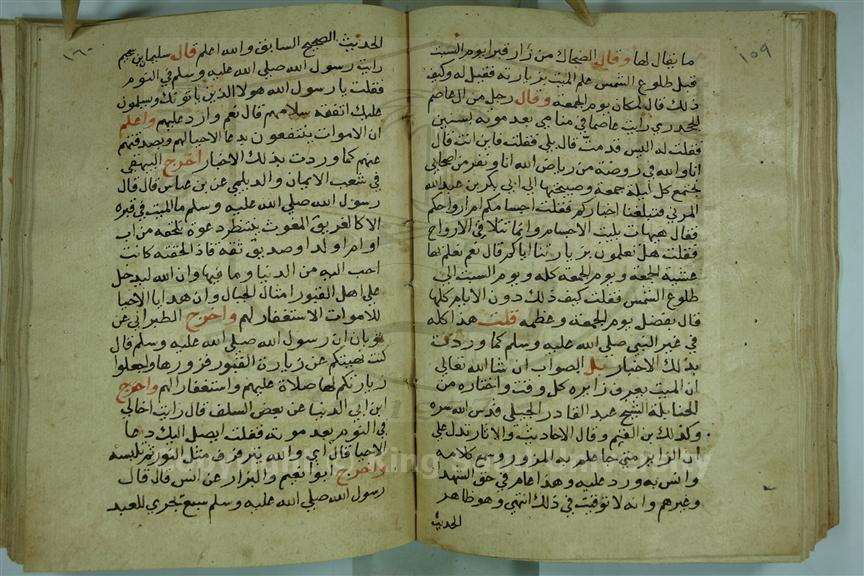 ١٥٩
ما يقال لها وقال الضحاك من زار قبرا يوم السبت
قبل طلوع الشمس علم الميت بزيارته فقيل له وكيف
ذلك قال لمكان يوم الجمعة وقال رجل من ال عاصم
الجحدري رايت عاصما في منامي بعد موته بسنين
فقلت له اليس قد مت قال بلي فقلت فاين انت قال
انا والله في روضة من رياض الله انا ونفر من اصحابي
نجتمع كل ليلة جمعة وصبيحتها الي ابي بكر بن عبد الله
المزني فنتلقا اخباركم فقلت اجسامكم ام ارواحكم
فقال هيهات بليت الاجسام وانما تتلاقي الارواح
فقلت هل تعلمون بزيارتنا اياكم قال نعم نعلم بها
عشية الجمعة ويوم الجمعة كله ويوم السبت الي
طلوع الشمس فقلت كيف ذلك دون الايام كلها
قال بفضل يوم الجمعة وعظمه قلت هذا كله
في غير النبي صلي الله عليه وسلم كما وردت
بذلك الاخبار بل الصواب ان شا الله تعالي
ان الميت يعرف زايره كل وقت واختاره من
الحنابلة الشيخ عبد القادر الجيلي قدس الله سره
وكذلك بن القيم وقال الاحاديث والاثار تدل علي
ان الزاير متي جا علم به المزور وسمع كلامه
وانس به ورد عليه وهذا عام في حق الشهدا
وغيرهم وانه لا توقيت في ذلك انتهي وهو ظاهر
الحديث
١٦٠
الحديث الصحيح السابق والله اعلم قال سليمان بن سحيم
رايت رسول الله صلي الله عليه وسلم في النوم
فقلت يا رسول الله هولا الذين ياتونك ويسلمون
عليك اتفقه سلامهم قال نعم وارد عليهم واعلم
ان الاموات ينتفعون بدعا الاحيا لهم وبصدقتهم
عنهم كما وردت بذلك الاخبار اخرج البيهقي
في شعب الايمان والديلمي عن بن عباس قال قال
رسول الله صلي الله عليه وسلم ما الميت في قبره
الا كالغريق المغوث ينتظر دعوة تلحقه من اب
او ام او ولد او صديق ثقة فاذ الحقته كانت
احب اليه من الدنيا وما فيها وان الله ليدخل
علي اهل القبور امثال الجبال وان هدايا الاحيا
للاموات الاستغفار لهم واخرج الطبراني عن
ثوبان ان رسول الله صلي الله عليه وسلم قال
كنت نهيتكم عن زيارة القبور فزوروها واجعلوا
زيارتكم لها صلاة عليهم واستغفارا لهم واخرج
ابن ابي الدنيا عن بعض السلف قال رايت اخا لي
في النوم بعد موته فقلت ايصل اليك دعا
الاحيا قال اي والله يترفرف مثل النور ثم نلبسه
واخرج ابو نعيم والبزار عن انس قال قال
رسول الله صلي الله عليه وسلم سبع تجري للعبد